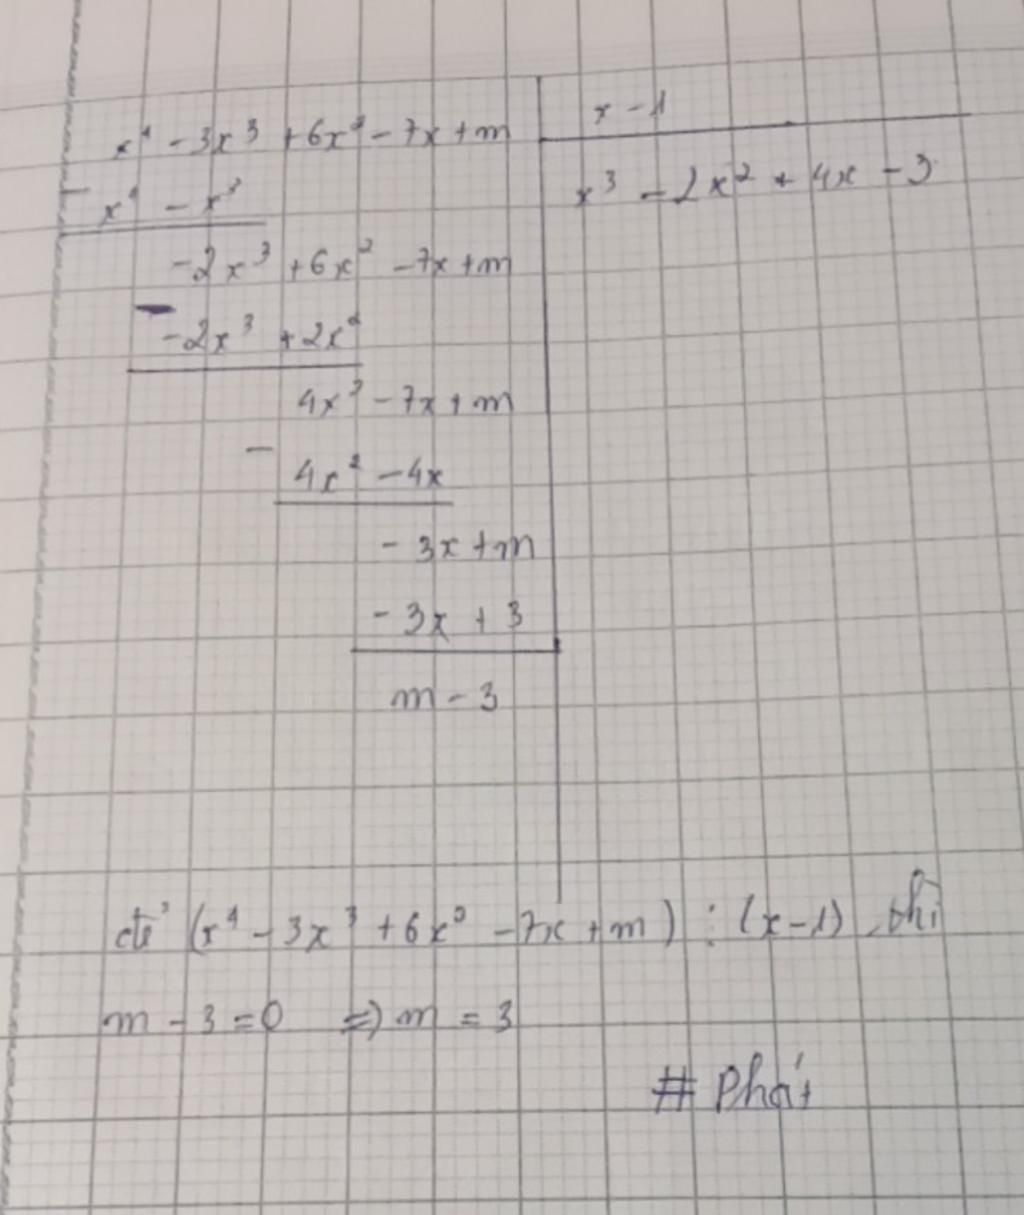 x⁴ - 3x³ + 6x² - 7x + m
x - 1
- x⁴ - x³
x³ - 2x² + 4x - 3
-2x³ + 6x² - 7x + m
- -2x³ + 2x²
4x² - 7x + m
- 4x² - 4x
- 3x + m
- 3x + 3
m - 3
để (x⁴ - 3x³ + 6x² - 7x + m) ⋮ (x - 1) thì
m - 3 = 0 => m = 3
# Phát